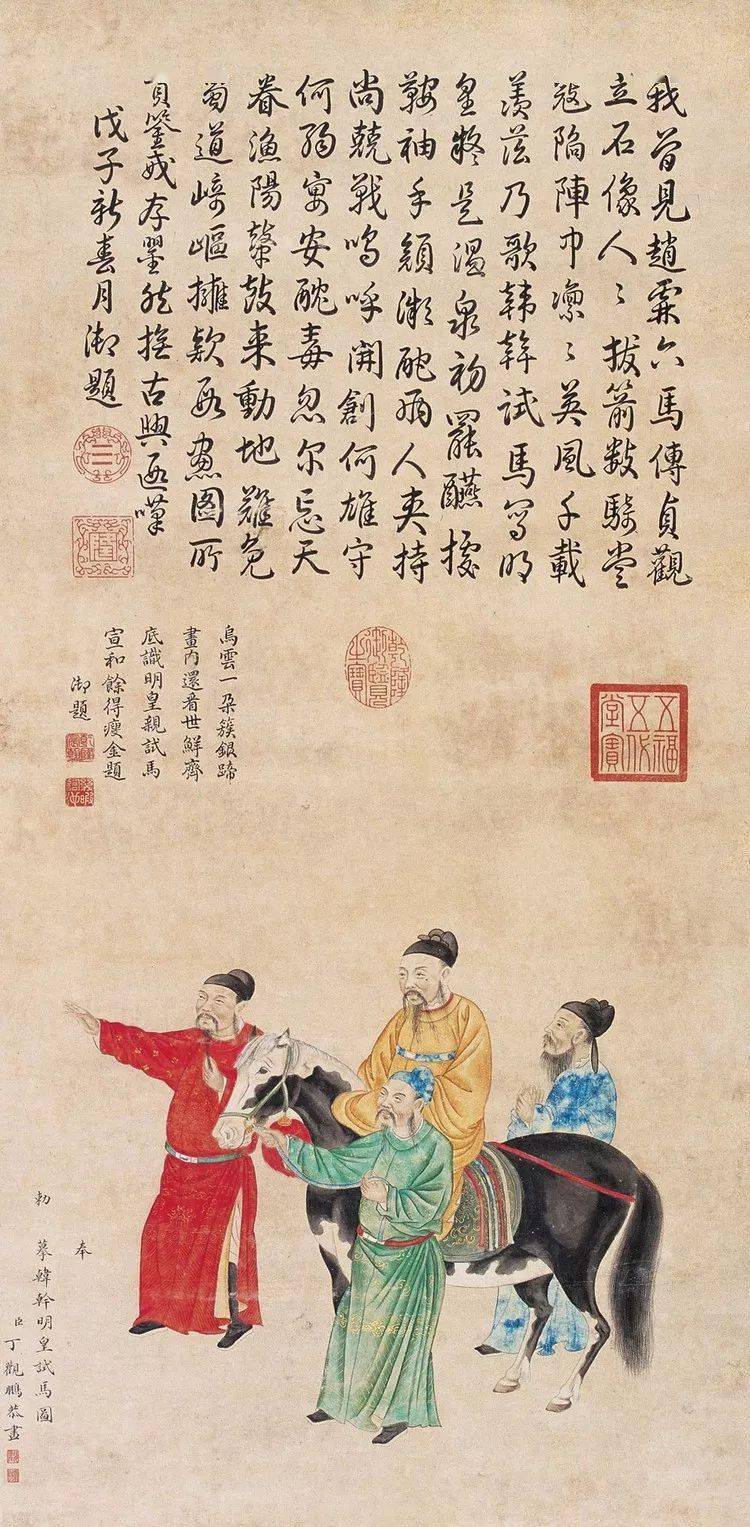 我曾見趙霖六馬傳貞觀
立石像人〻拔箭數騎當
寇陷陣中凛〻英風千載
羨茲乃歌韓幹試馬寫明
皇是温泉初罷醼據
鞍袖手顏微酡兩人夾持
尚兢戰嗚呼開創何雄守
何宴安酖毒忽尔忘天
眷漁陽鼙鼓来動地難免
蜀道崎嶇擁欵段畫圖所
具鑒戒存然撫古興遐嘆
戊子新春月御題
三
五福五代堂寶
乾隆御覽之寶
烏雲一朶簇銀蹄
畫内還看世鮮齊
底識明皇親試馬
宣和餘得瘦金題
御題
奉
勅摹韓幹明皇試馬圖
臣丁觀鵬恭畫